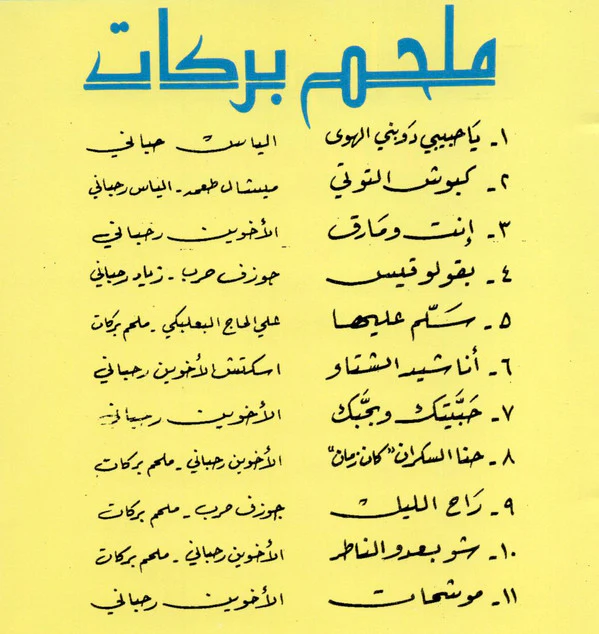 ملحم بركات
١- يَا حبيبي دَوبني الهوى الياس رحباني
٢- كبوش التوتي ميشال طعمه - الياس رحباني
٣- إنت ومَارق الأخوين رحباني
٤- بقولو قيس جوزف حرب - زياد رحباني
٥- سَلّم عليها علي الحاج البعلبكي - ملحم بركات
٦- أناشيد الشتاو اسكتش الأخوين رحباني
٧- حَبَّيتك وبحبَّك الأخوين رحباني
٨- حنا السكران "كان زمان" الأخوين رحباني - ملحم بركات
٩- رَاح الليل جوزف حرب - ملحم بركات
١٠- شو بعدو الناطر الأخوين رحباني - ملحم بركات
١١- موشحات الأخوين رحباني